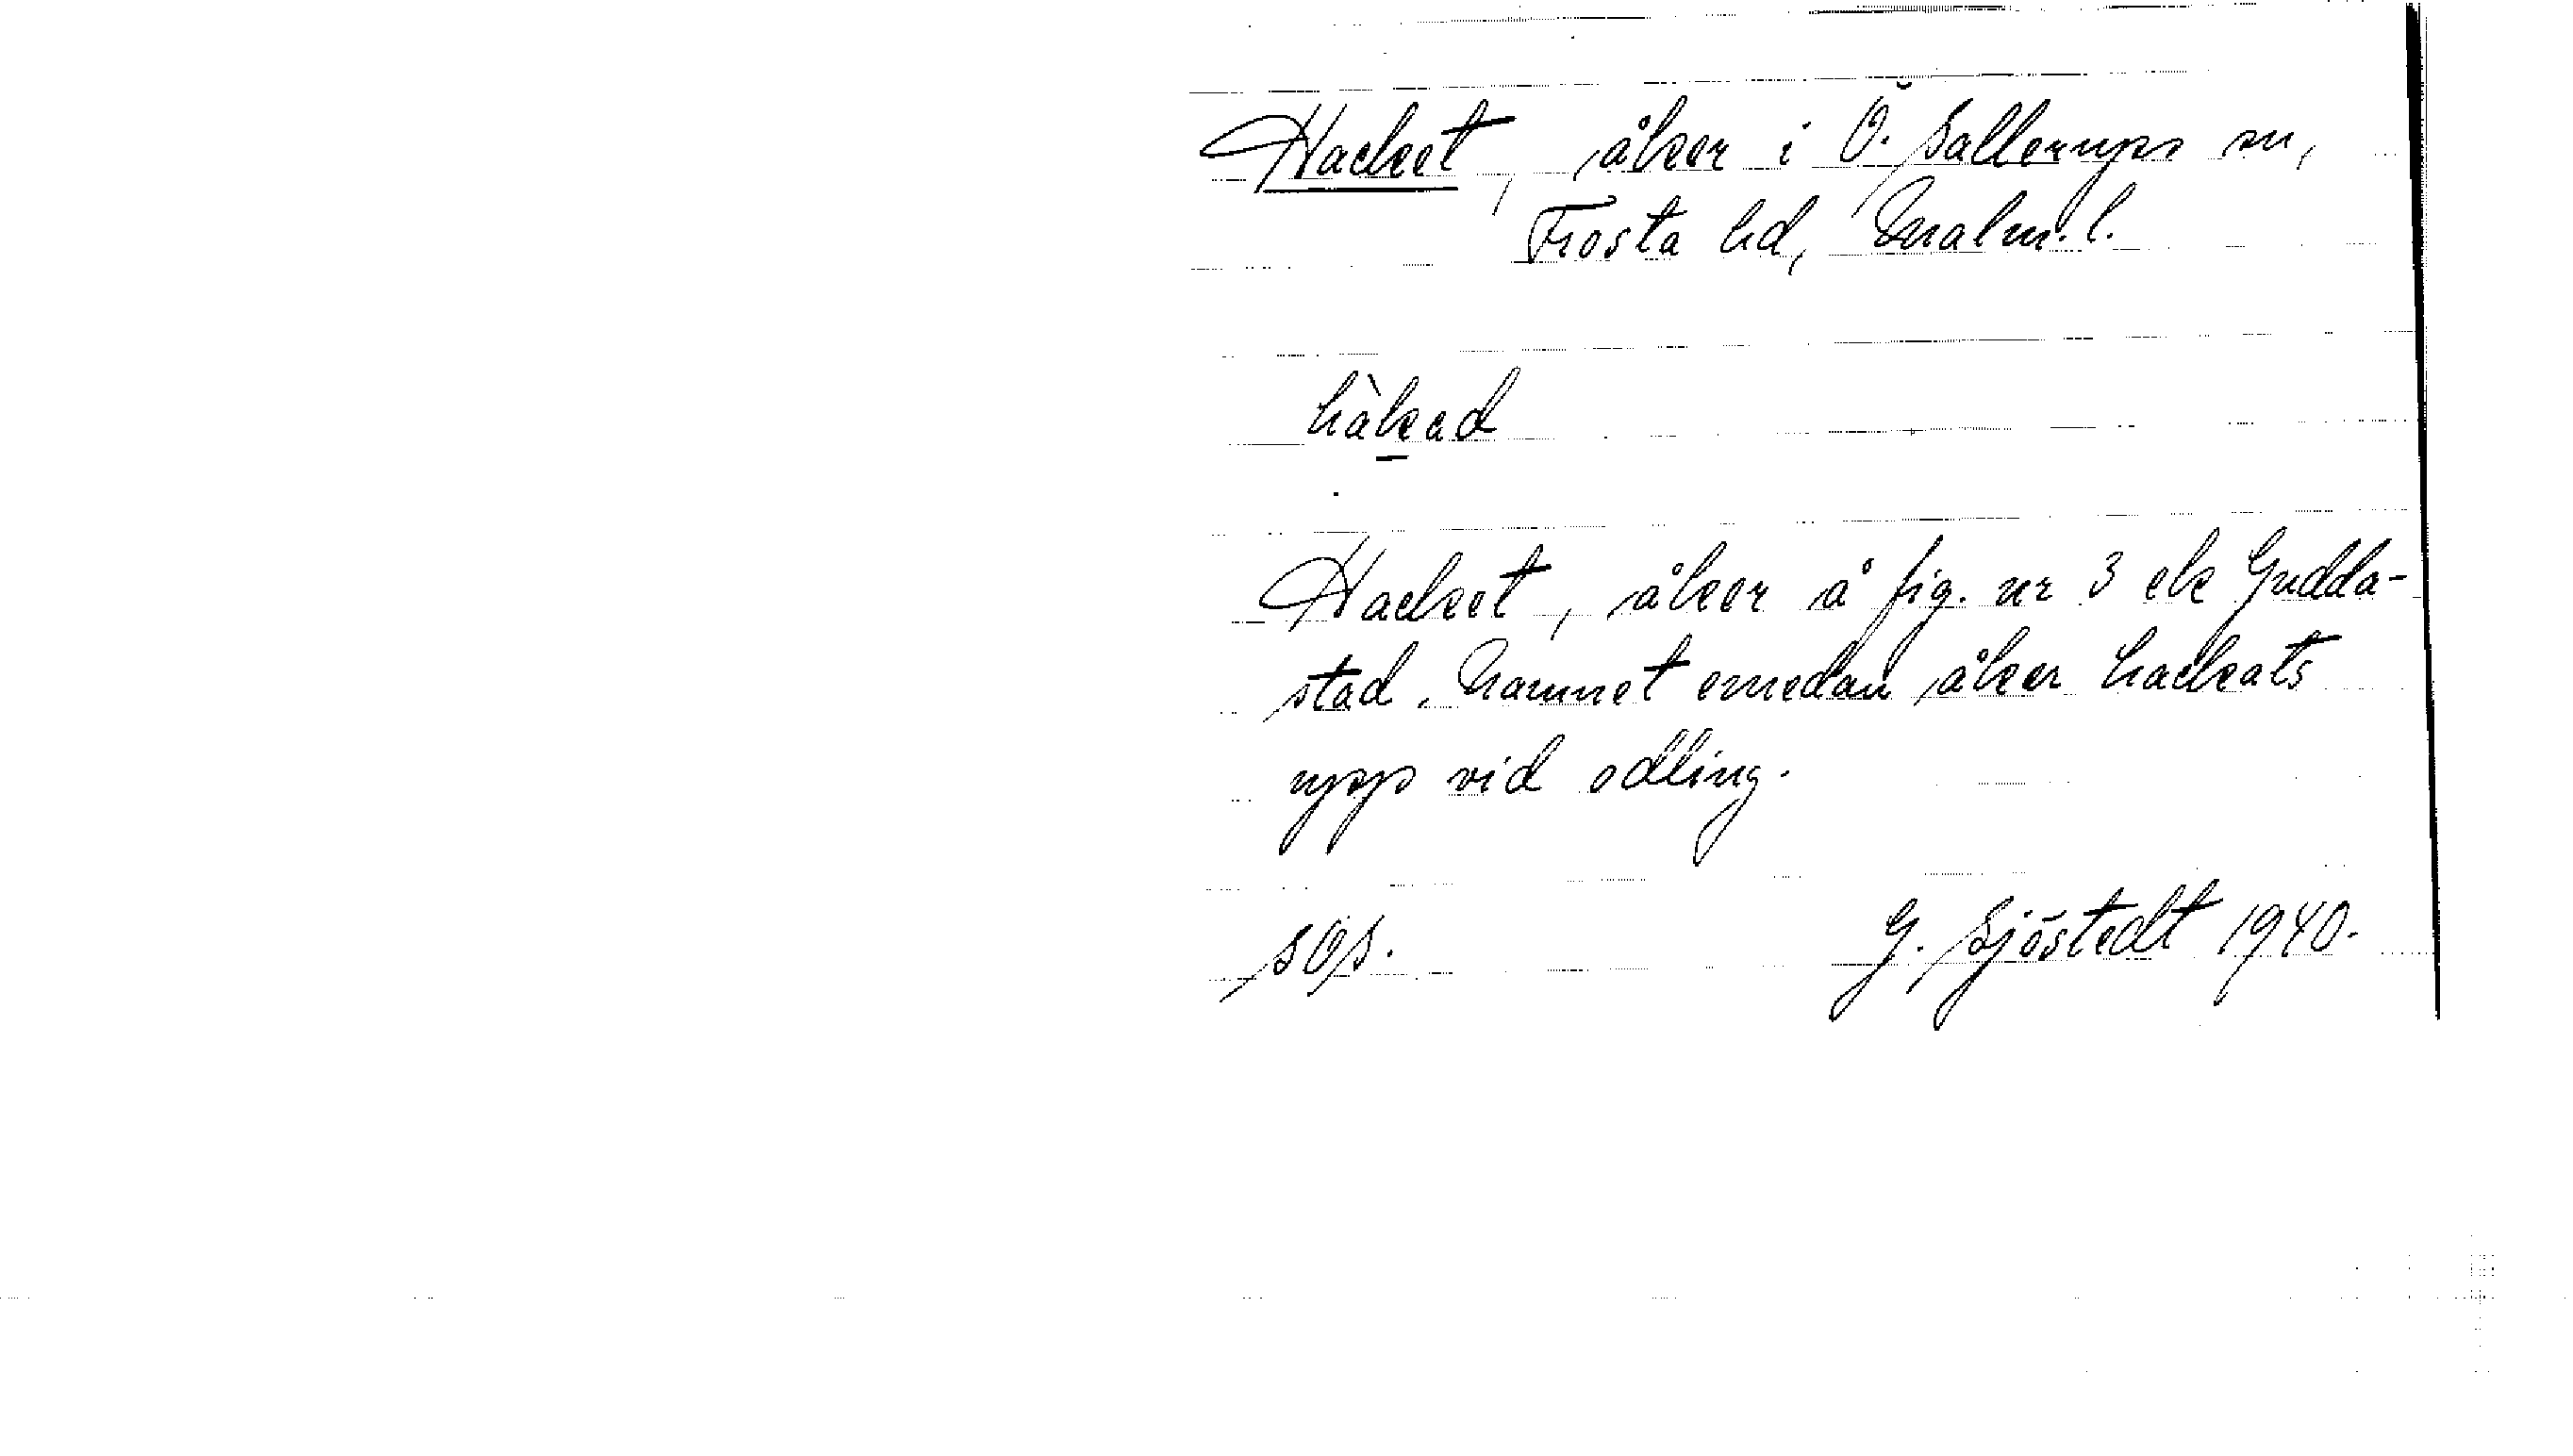 Hacket, åker i Ö. Sallerups sn,
Frosta hd, Malm. l.
hàkad
Hacket, åker å fig. nr 3 ek Gudda-
stad. Namnet emedan åker hackats
upp vid odling.
SOS. G. Sjöstedt 1940.